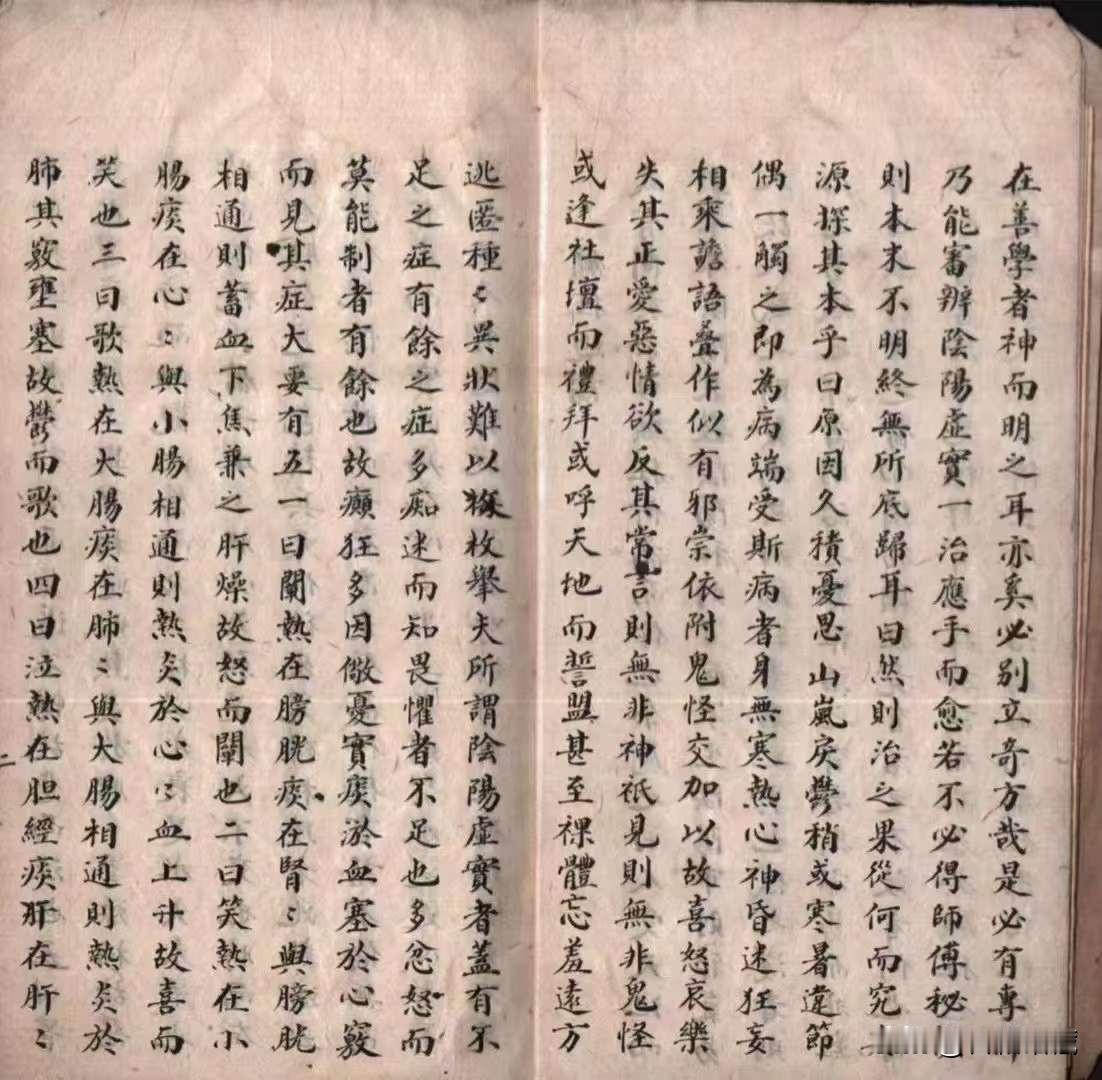 在善學者神而明之耳亦奚必別立奇方哉是必有專
乃能審辨陰陽虛實一治應手而愈若不必得師傳秘
則本末不明終無所底歸耳曰然則治之果從何而究
源探其本乎曰原因久積憂思山嵐戾鬱稍或寒暑違節
偶一觸之即為病端受斯病者身無寒熱心神昏迷狂妄
相乘譫語疊作似有邪祟依附鬼怪交加以故喜怒哀樂
失其正愛惡情欲反其常言則無非神祇見則無非鬼怪
或逢社壇而禮拜或呼天地而誓盟甚至裸體忘羞遠方
逃匿種〻異狀難以枚舉夫所謂陰陽虛實者蓋有不
足之症有餘之症多痴迷而知畏懼者不足也多忿怒而
莫能制者有餘也故癲狂多因儌憂實痰淤血塞於心竅
而見其症大要有五一曰鬧熱在膀胱痰在腎〻與膀胱
相通則蓄血下焦兼之肝燥故怒而鬧也二曰笑熱在小
腸痰在心〻與小腸相通則熱炎於心〻血上升故喜而
笑也三曰歌熱在大腸痰在肺〻與大腸相通則熱炎於
肺其竅壅塞故鬱而歌也四曰泣熱在胆經痰肝在肝〻
二